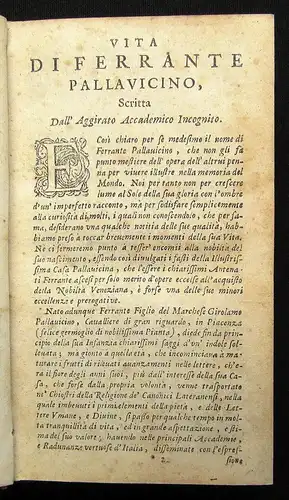 VITA
DI FERRANTE
PALLAVICINO,
Scritta
Dall' Aggirato Accademico Incognito.
E Così chiaro per se medesimo il nome di
Ferrante Pallavicino, che non gli fà
punto mestiere dell' opera dell'altrui pen-
na per vivere illustre nella memoria del
Mondo. Noi per tanto non per crescere
lume al Sole della sua gloria con l'ombre
d'un' imperfetto racconto, ma per sodisfare semplicemente
alla curiosità di molti, i quali non conoscendolo, che per fa-
ma, desiderano una qualche notitia delle sue qualità, hab-
biamo preso à toccar brevemente i momenti della sua Vita.
Nè ci fermeremo punto à tesser encomii alla nobiltà del
suo nascimento, essendo così divulgati i fasti della Illustris-
sima Casa Pallavicina, che l'essere i chiarissimi Antena-
ti Ferrante ascesi per solo merito d'opere eccelse all'acquisto
della Nobiltà Veneziana, è forse una delle sue minori
eccellenze e prerogative.
Nato adunque Ferrante Figlio del Marchese Girolamo
Pallavicino, Cavalliere di gran riguardo, in Piacenza
(felice germoglio di nobilissima Pianta), diede fin da prin-
cipio della sua Infanzia chiarissimi saggi d'un' indole sol-
levata; ma gionto à quella età, che incominciava à ma-
turare i frutti di rilevati avanzamenti nelle lettere, ch'e-
ra il fiore degli anni suoi, più dall' interesse della sua Ca-
sa, che forse dalla propria volontà, venne trasportato
ne' Chiostri della Religione de' Canonici Lateranensi, nella
quale imbevuti i primi elementi della pietà, e delle Let-
tre Vmane, e Divine, si portò per qualche tempo in mol-
ta tranquillità di vita, ed in grande aspettazione, e sti-
ma del suo valore; havendo nelle principali Accademie, e
Radunanze vertuose d'Italia, disseminate con l'espres-
sione